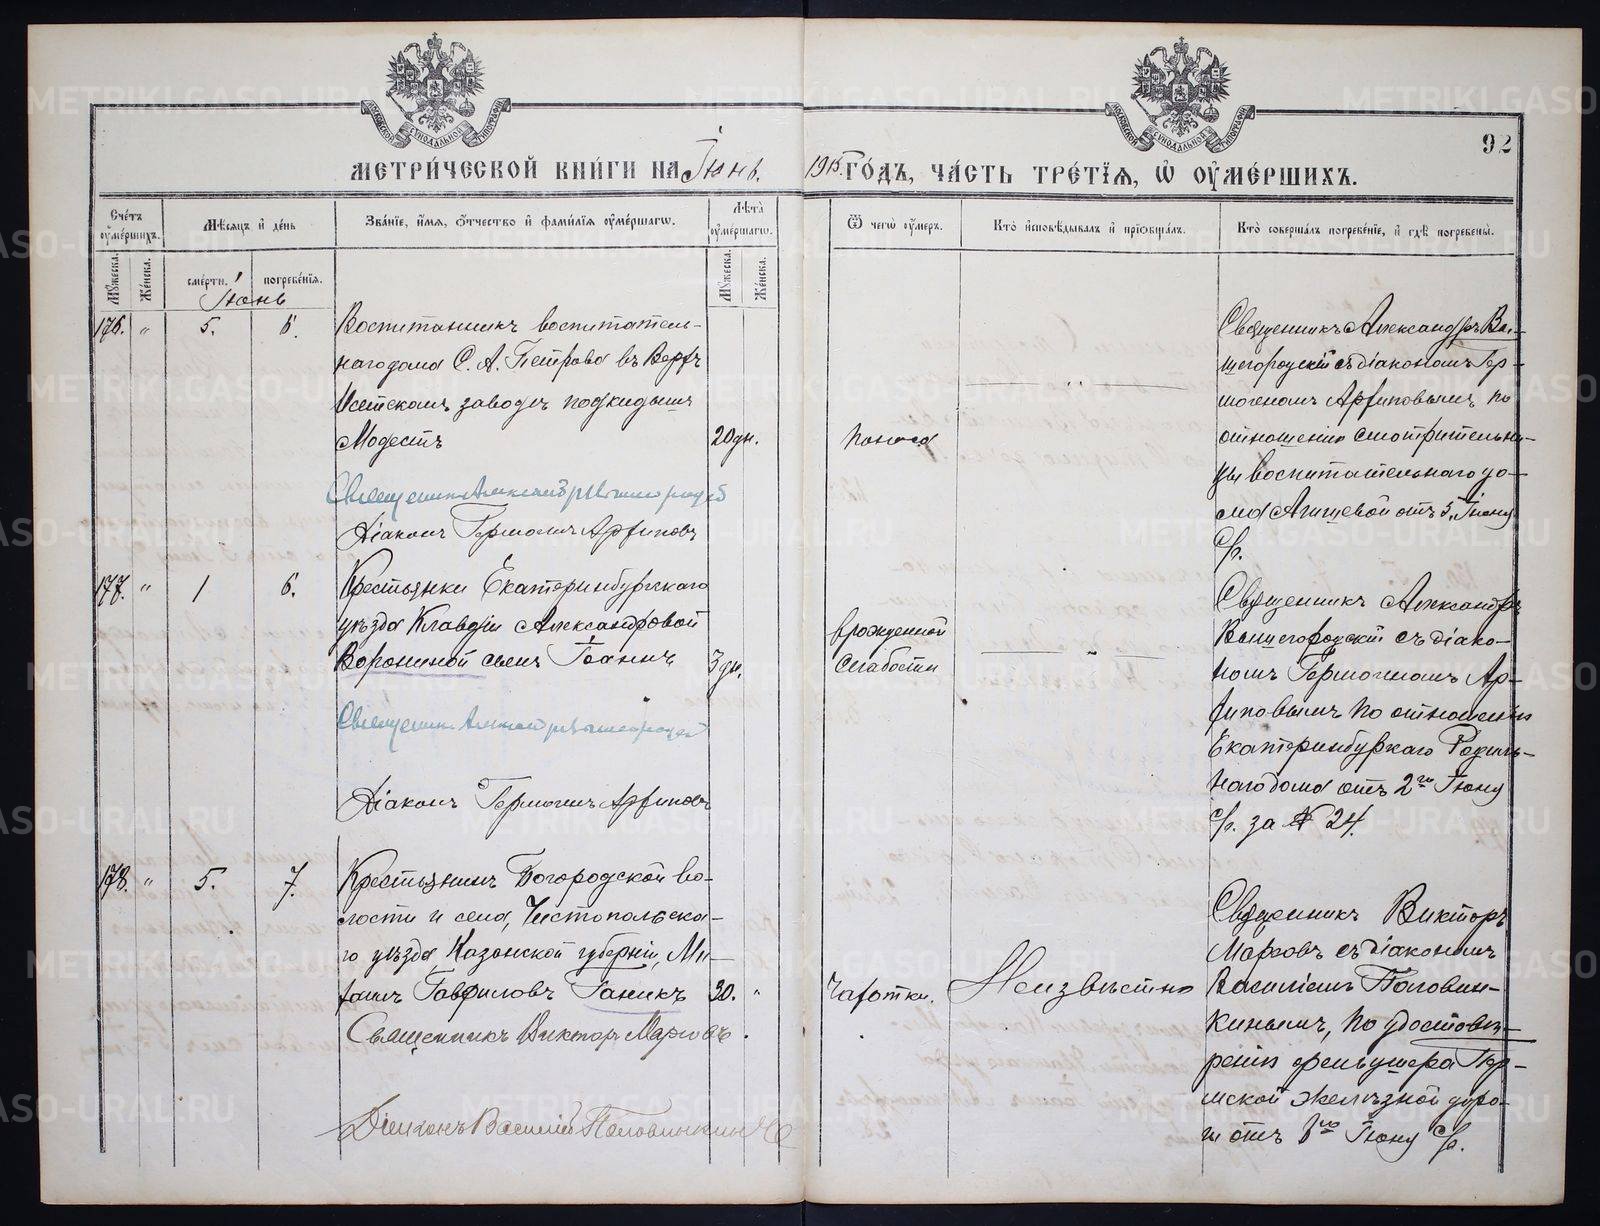 92
МЕТРИ́ЧЕСКОЙ КНИ́ГИ НА Іюнь. 1915 ГО́ДЪ, ЧА́СТЬ ТРЕ́ТІЯ, Ѡ҆ ОУ҆МЕ́РШИХЪ.
Счетъ оумершихъ.
Мѣсяцъ и день
Званіе, имя, отчество и фамилія оумершагѡ.
Лѣта оумершагѡ.
Ѿ чегѡ оумеръ.
Кто исповѣдывалъ и пріобщалъ.
Кто совершалъ погребеніе, и гдѣ погребены.
Мужеска.
Женска.
смерти.
погребенія.
Мужеска.
Женска.
Іюнь
176. " 5. 6.
Воспитанникъ воспитатель-
наго дома С. А. Петрова въ Верхъ
Исетскомъ заводѣ подкидышъ
Модестъ 20 дн.
поноса
Священникъ Александръ Ва-
шегородскій съ діакономъ Гер-
могеномъ Архиповымъ по
отношенію смотрительни-
цы воспитательнаго до-
ма Агищевой отъ 5 Іюня
с/г.
Священникъ Александръ Вышегородскій
Діаконъ Гермогенъ Архиповъ
177. " 1 6.
Крестьянки Екатеринбургскаго
уѣзда Клавдіи Александровой
Ворониной сынъ Іоаннъ 3 дн.
врожденной
слабости
Священникъ Александръ
Вышегородскій съ діако-
номъ Гермогеномъ Ар-
хиповымъ по отношенію
Екатеринбургскаго Родиль-
наго дома отъ 2го Іюня
с/г. за № 24.
Священникъ Александръ Вышегородскій
Діаконъ Гермогенъ Архиповъ
178. " 5. 7.
Крестьянинъ Богородской во-
лости и села, Чистопольска-
го уѣзда Казанской губерніи, Ми-
хаилъ Гавриловъ Ганикъ 30. "
Чахотки.
Неизвѣстно
Священникъ Викторъ
Марковъ съ діакономъ
Василіемъ Половин-
кинымъ, по удостовѣ-
ренію фельдшера Пер-
мской желѣзной доро-
ги отъ 6го Іюня с/г.
Священникъ Викторъ Марковъ.
Діаконъ Василій Половинкинъ